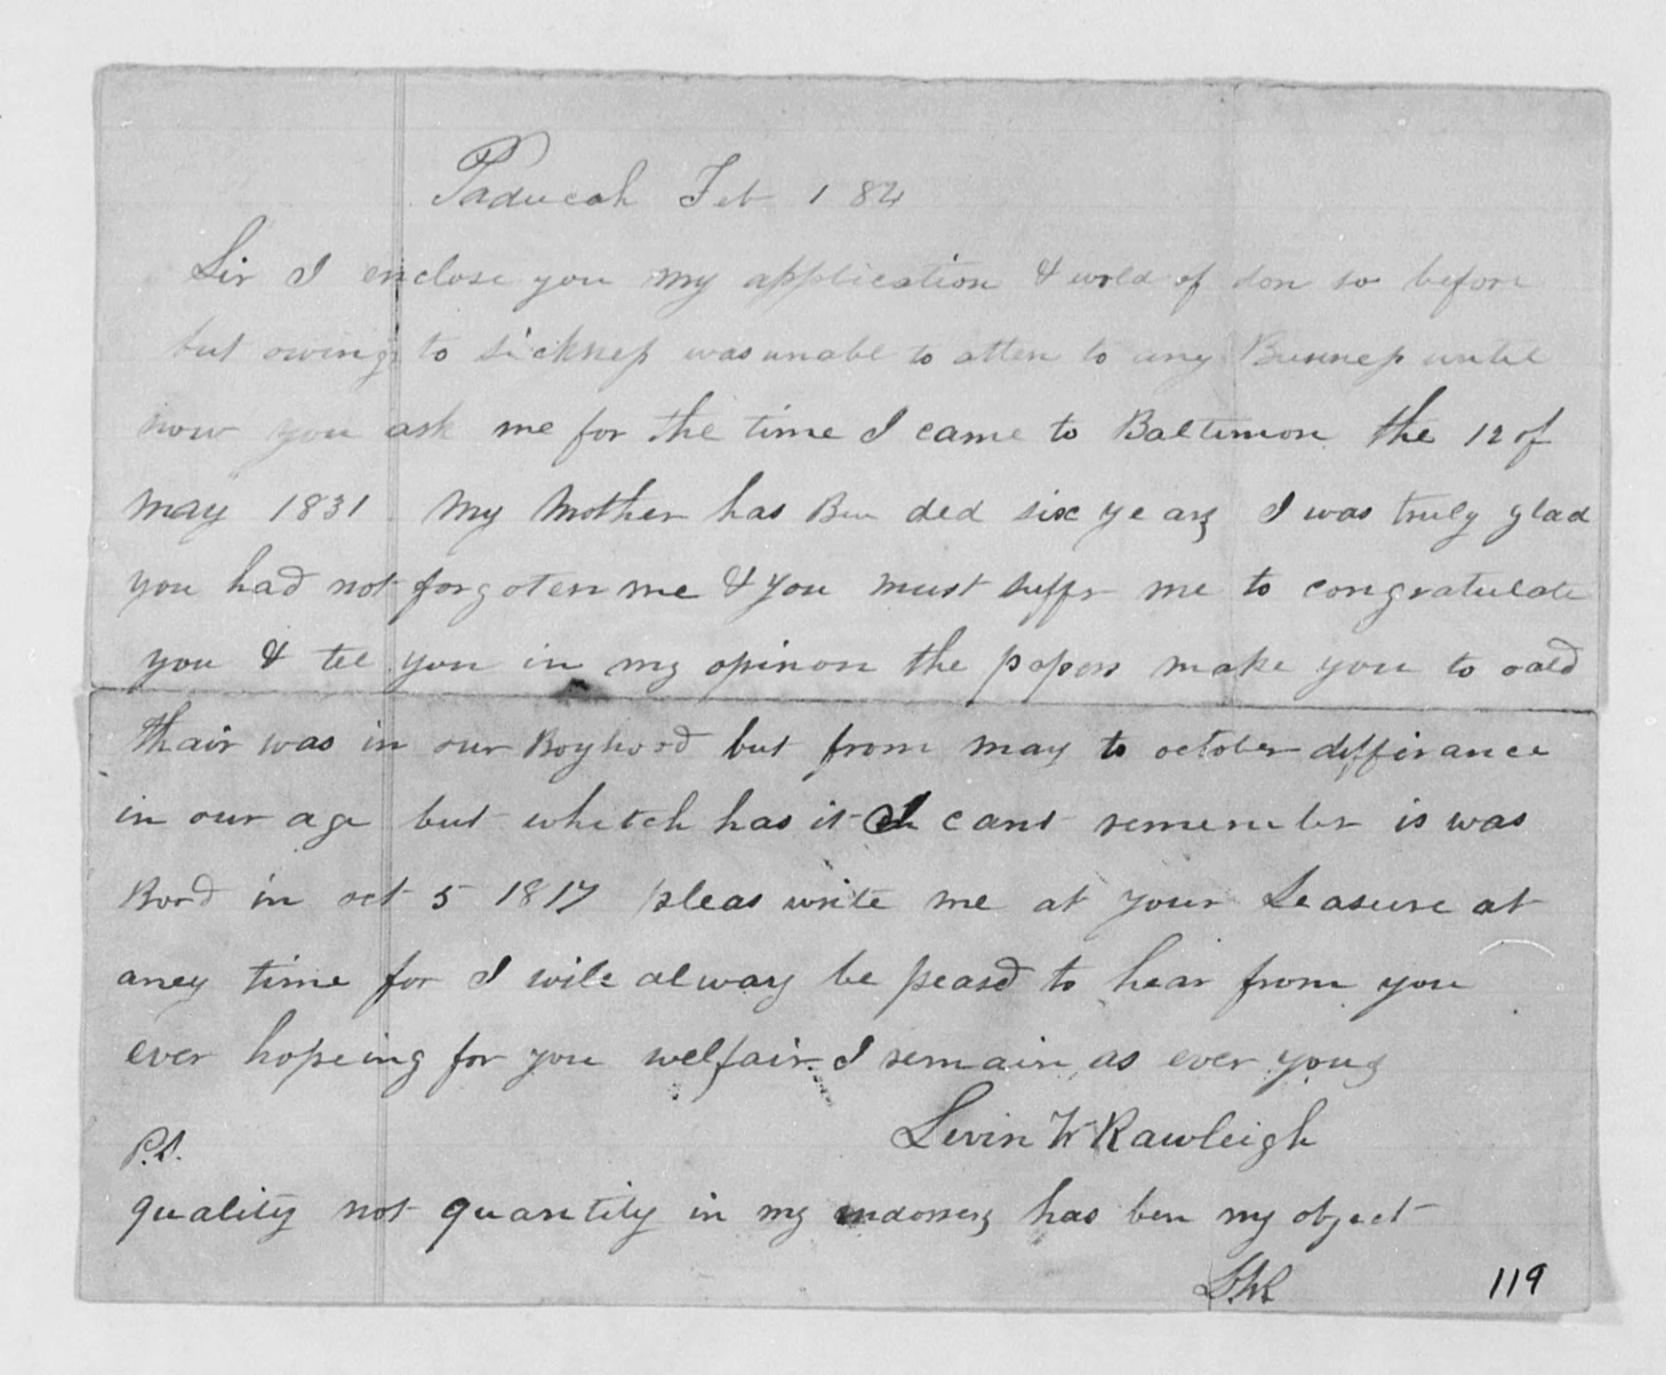 Paducah Feb 1 84
Sir I enclose you my application & wold of don so before
but owing to sickness was unabl to atten to any Business until
now you ask me for the time I came to Baltimore the 12 of
may 1831 My Mother has Bin ded six years I was truly glad
you had not forgoten me & you must suffr me to congratulate
you & tel you in my opinon the papers make you to oald
thair was in our Boyhood but from may to october differance
in our age but whitch has it I cant remember is was
Bord in oct 5 1817 pleas write me at your Leasure at
aney time for I wile alway be peasd to hear from you
ever hopeing for you welfair I remain as ever yous
Levin W Rawleigh
P.S.
quality not quantity in my indorsers has ben my object
LWR
119